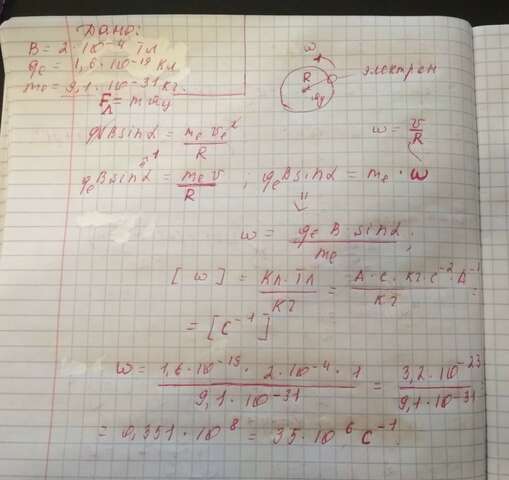 Дано:
B = 2·10⁻⁴ Тл
qe = 1,6·10⁻¹⁹ Кл
me = 9,1·10⁻³¹ кг.
Fл = m aц
ω
R
aц
электрон
qVBsinα = me v²/R
ω = v/R
1
qe B sinα = me v/R ; qe B sinα = me · ω
⇓
ω = qe B · sinα / me ;
[ω] = Кл·Тл/кг = А·с·кг·с⁻²·А⁻¹/кг =
= [с⁻¹]
ω = 1,6·10⁻¹⁹ · 2·10⁻⁴ · 1 / 9,1·10⁻³¹ = 3,2·10⁻²³ / 9,1·10⁻³¹
= 0,351·10⁸ = 35·10⁶ с⁻¹.